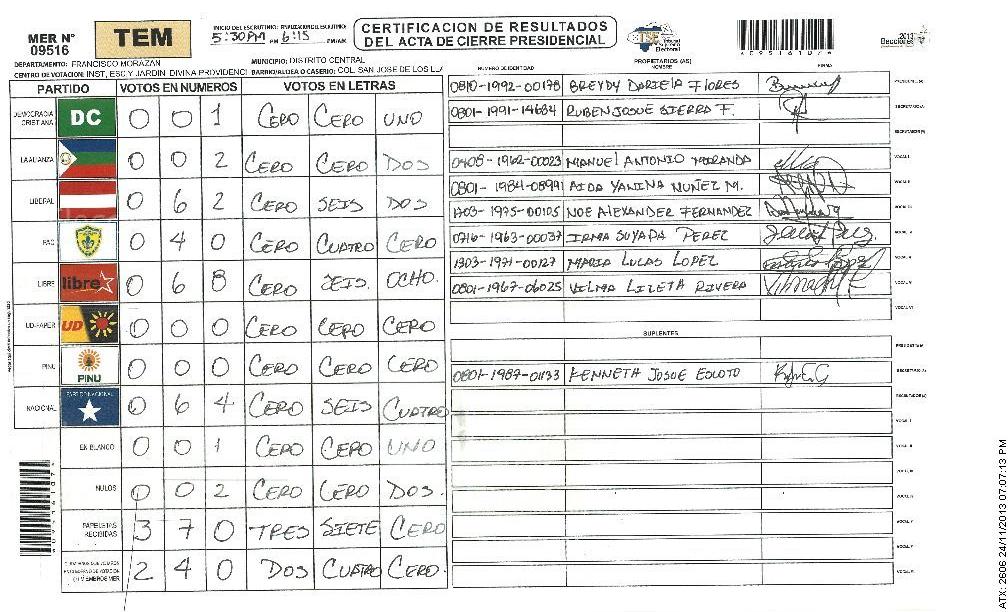 MER N° 09516
TEM
INICIO DEL ESCRUTINIO: FINALIZACION ESCRUTINIO:
5:30PM PM 6:15 PM/AM
CERTIFICACION DE RESULTADOS
DEL ACTA DE CIERRE PRESIDENCIAL
TSE Tribunal Supremo Electoral
Elecciones 2013
DEPARTAMENTO: FRANCISCO MORAZAN
MUNICIPIO: DISTRITO CENTRAL
CENTRO DE VOTACION: INST, ESC Y JARDIN DIVINA PROVIDENCI BARRIO/ALDEA O CASERIO: COL. SAN JOSE DE LOS LLA
PARTIDO VOTOS EN NUMEROS VOTOS EN LETRAS
DEMOCRACIA CRISTIANA DC 0 0 1 CERO CERO UNO
LA ALIANZA 0 0 2 CERO CERO DOS
LIBERAL 0 6 2 CERO SEIS DOS
PAC 0 4 0 CERO CUATRO CERO
LIBRE libre 0 6 8 CERO SEIS. OCHO.
UD-FAPER UD 0 0 0 CERO CERO CERO
PINU PINU 0 0 0 CERO CERO CERO
NACIONAL PARTIDO NACIONAL 0 6 4 CERO SEIS CUATRO
EN BLANCO 0 0 1 CERO CERO UNO
NULOS 0 0 2 CERO CERO DOS.
PAPELETAS RECIBIDAS 3 7 0 TRES SIETE CERO
2 4 0 DOS CUATRO CERO.
NUMERO DE IDENTIDAD PROPIETARIOS (AS) NOMBRE FIRMA
0810-1992-00178 BREYDY DARIELA FLORES PRESIDENTE (A)
0801-1991-14684 RUBEN JOSUE SIERRA F. SECRETARIO/A
ESCRUTADOR (A)
0405-1962-00023 MANUEL ANTONIO MIRANDA VOCAL I
0801-1984-08991 AIDA YANINA NUÑEZ M. VOCAL II
1703-1975-00105 NOE ALEXANDER FERNANDEZ VOCAL III
0716-1963-00037 IRMA SUYAPA PEREZ VOCAL IV
1303-1971-00127 MARIA LUCAS LOPEZ VOCAL V
0801-1967-06025 VILMA LIZETA RIVERA VOCAL VI
SUPLENTES
PRESIDENTE (A)
0801-1987-01133 KENNETH JOSUE ESLOTO SECRETARIO (A)
ESCRUTADOR (A)
VOCAL I
VOCAL II
VOCAL III
VOCAL IV
VOCAL V
ATX: 2606 24/11/2013 07:07:13 PM